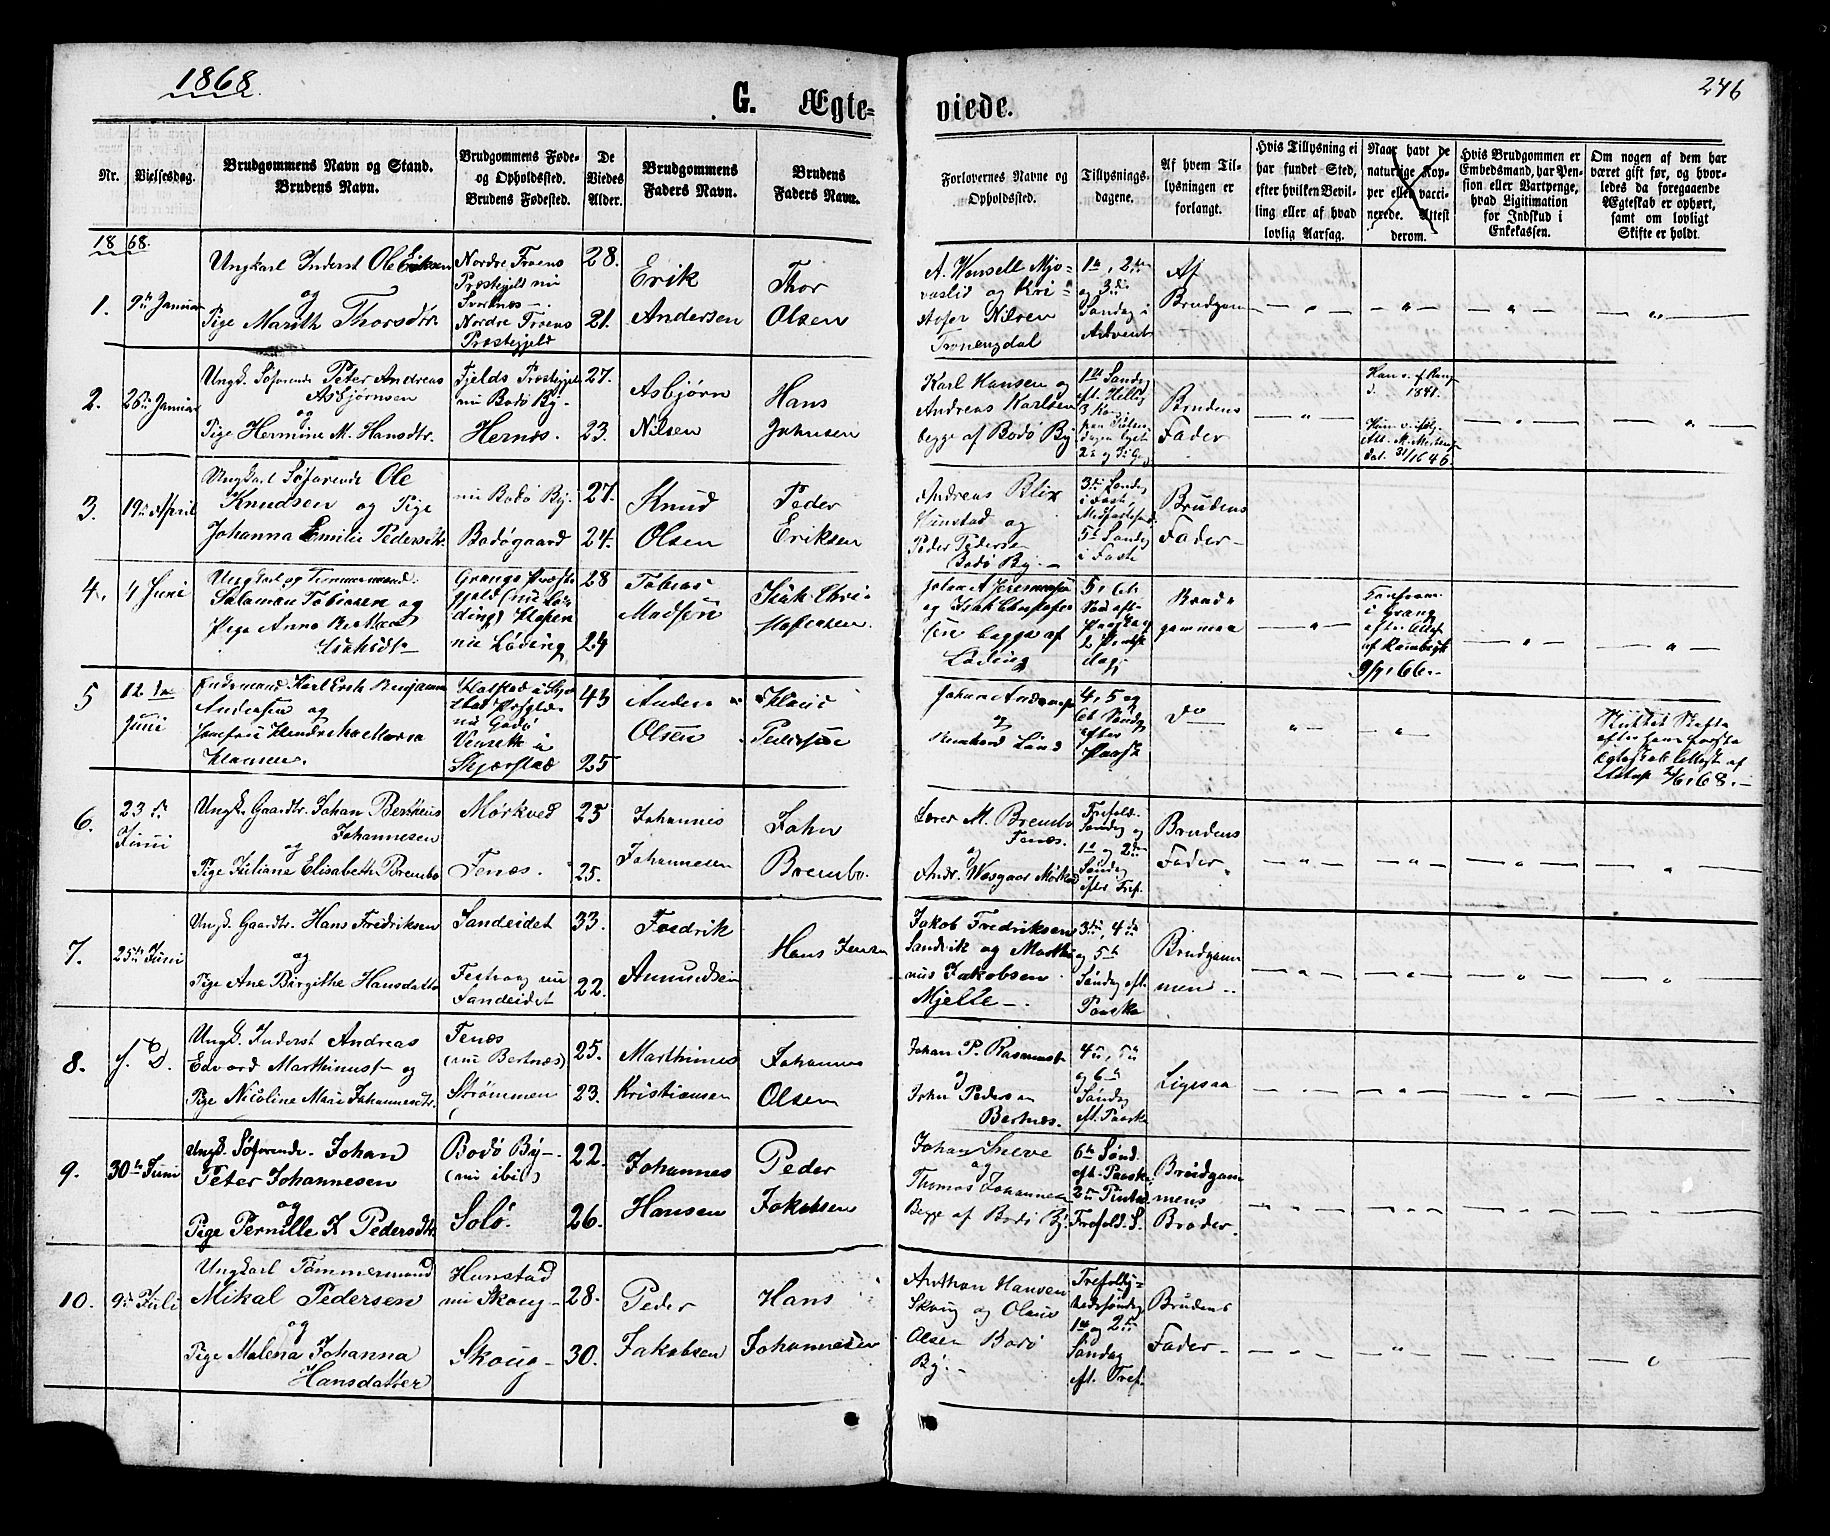 1868.
246
G. Ægte=
viede.
Nr.
Vielsesdag.
Brudgommens Navn og Stand.
Brudens Navn.
Brudgommens Føde-
og Opholdsted.
Brudens Fødested.
De
Viedes
Alder.
Brudgommens
Faders Navn.
Brudens
Faders Navn.
Forlovernes Navne og
Opholdsted.
Tillysnings-
dagene.
Af hvem Til-
lysningen er
forlangt.
Hvis Tillysning ei
har fundet Sted,
efter hvilken Bevil-
ling eller af hvad
lovlig Aarsag.
Naar havt de
naturlige Kop-
per eller vacci-
nerede. Attest
derom.
Hvis Brudgommen er
Embedsmand, har Pen-
sion eller Vartpenge,
hvad Ligitimation
for Indskud i
Enkekassen.
Om nogen af dem har
været gift før, og hvor-
ledes da foregaaende
Ægteskab er ophørt,
samt om lovligt
Skifte er holdt.
1868.
1.
9de Januar
Ungkarl Inderst Ole Eriksen
og
Pige Marith Thorsdtr.
Nordre Froens
Præstegjeld nu
Nordre Froens
Præstegjeld
28.
21.
Erik
Andersen
Thor
Olsen
og Kri
Nilsen
1ste, 2den
og 3die
Søndag i
Advent
Af
Brudgom
2.
26de Januar
Ungk. Søfarende Peter Andreas
Asbjørnsen
og
Pige Hermine M. Hansdtr.
Fjelds Præstegjeld
nu Bodø By.
Hernes.
27.
23.
Asbjørn
Nilsen
Hans
Johnsen
Karl Hansen og
Andreas Karlsen
begge af Bodø By
1ste Søndag
eft. Hellig
3 Kon
Brudens
Fader
1841.
3.
19de April
Ungkarl Søfarende Ole
Knudsen og Pige
Johanna Emilie Pedersdtr.
nu Bodø By.
Bodøgaard
27.
24.
Knud
Olsen
Peder
Eriksen
Andreas Blix
og
Peder Pedersen
Bodø By. —
3die Søndag
i Faste
5te Søndag
i Faste
Brudens
Fader —
4.
4 Juni
Ungkarl og Tømmermand
Salamon Tobiasen og
Pige Anna
Isaksdtr
nu Løding
28
24
Tobias
Madsen
Isak Chri
stofersen.
og Isak Christofer
sen begge af
Løding
5, 6te
Brud
gommen
i
efter Attest
9/4 66.
5
12te
Juni
Enkemand Karl Erik Benjamin
Andersen og
Klausen.
Skjerstad
43
25
Anders
Olsen
Klaus
Pedersen
Johan Andersen
og
4, 5 og
6te Søndag
efter
Paaske
Do
Skiftet
efter hans første
Ægteskab Attest af
2/6 68. —
6.
23de
Juni
Ungk. Gaardbr. Johan Bertheus
Johannesen
og
Pige Juliane Elisabeth Brembo
Mørkved
Fenes.
25
25.
Johannes
Johannesen
John
Brembo.
Lærer M. Brembo
Fenes.
og
Andr. Mørkved
Trefold.
Søndag og
1ste og 2den
Søndag
efter Tref.
Brudens
Fader
7.
25de Juni
Ungk. Gaardbr. Hans Fredriksen
og
Pige Ane Birgithe Hansdatter
Sandeidet
Festvaag nu
Sandeidet
33.
22.
Fredrik
Amundsen
Hans Jensen
Jakob Fredriksen
Sandvik og Marthi
nus Jakobsen
Mjelle —.
3die, 4de
og 5te
Søndag eft.
Paaske
Brudgom
men
8.
s. D.
Ungk. Inderst Andreas
Edvard Marthinusen og
Pige Nicoline Marie Johannesdtr.
Fenes
(nu Bertnes)
Strømmen
25.
23.
Marthinus
Kristiansen
Johannes
Olsen
Johan P. Rasmussen
og
John Pedersen
Bertnes.
4de, 5te
og 6te
Søndag
eft. Paaske
Ligesaa
9.
30te Juni
Ungk. Søfarende. Johan
Peter Johannesen
og
Pige Pernille K Pedersdtr.
Bodø By.
(nu ibid)
Solø.
22.
26.
Johannes
Hansen
Peder
Jakobsen
Johan
og
Thomas Johannesen
Begge af Bodø By.
6te Sønd.
eft. Paaske
2den Pintsd.
Trefold. S.
Brudgom
mens
Broder.
10.
9de Juli
Ungkarl Tømmermand
Mikal Pedersen
og
Pige Malena Johanna
Hansdatter
Hunstad
nu Skoug —
Skoug —
28.
30.
Peder
Jakobsen
Hans
Johannesen
Anthon Hansen
Skoug og Olaus
Olsen Bodø
By. —
Trefoldig=
hedssøndag
1ste og 2den
Søndag
eft. Tref.
Brudens
Fader —